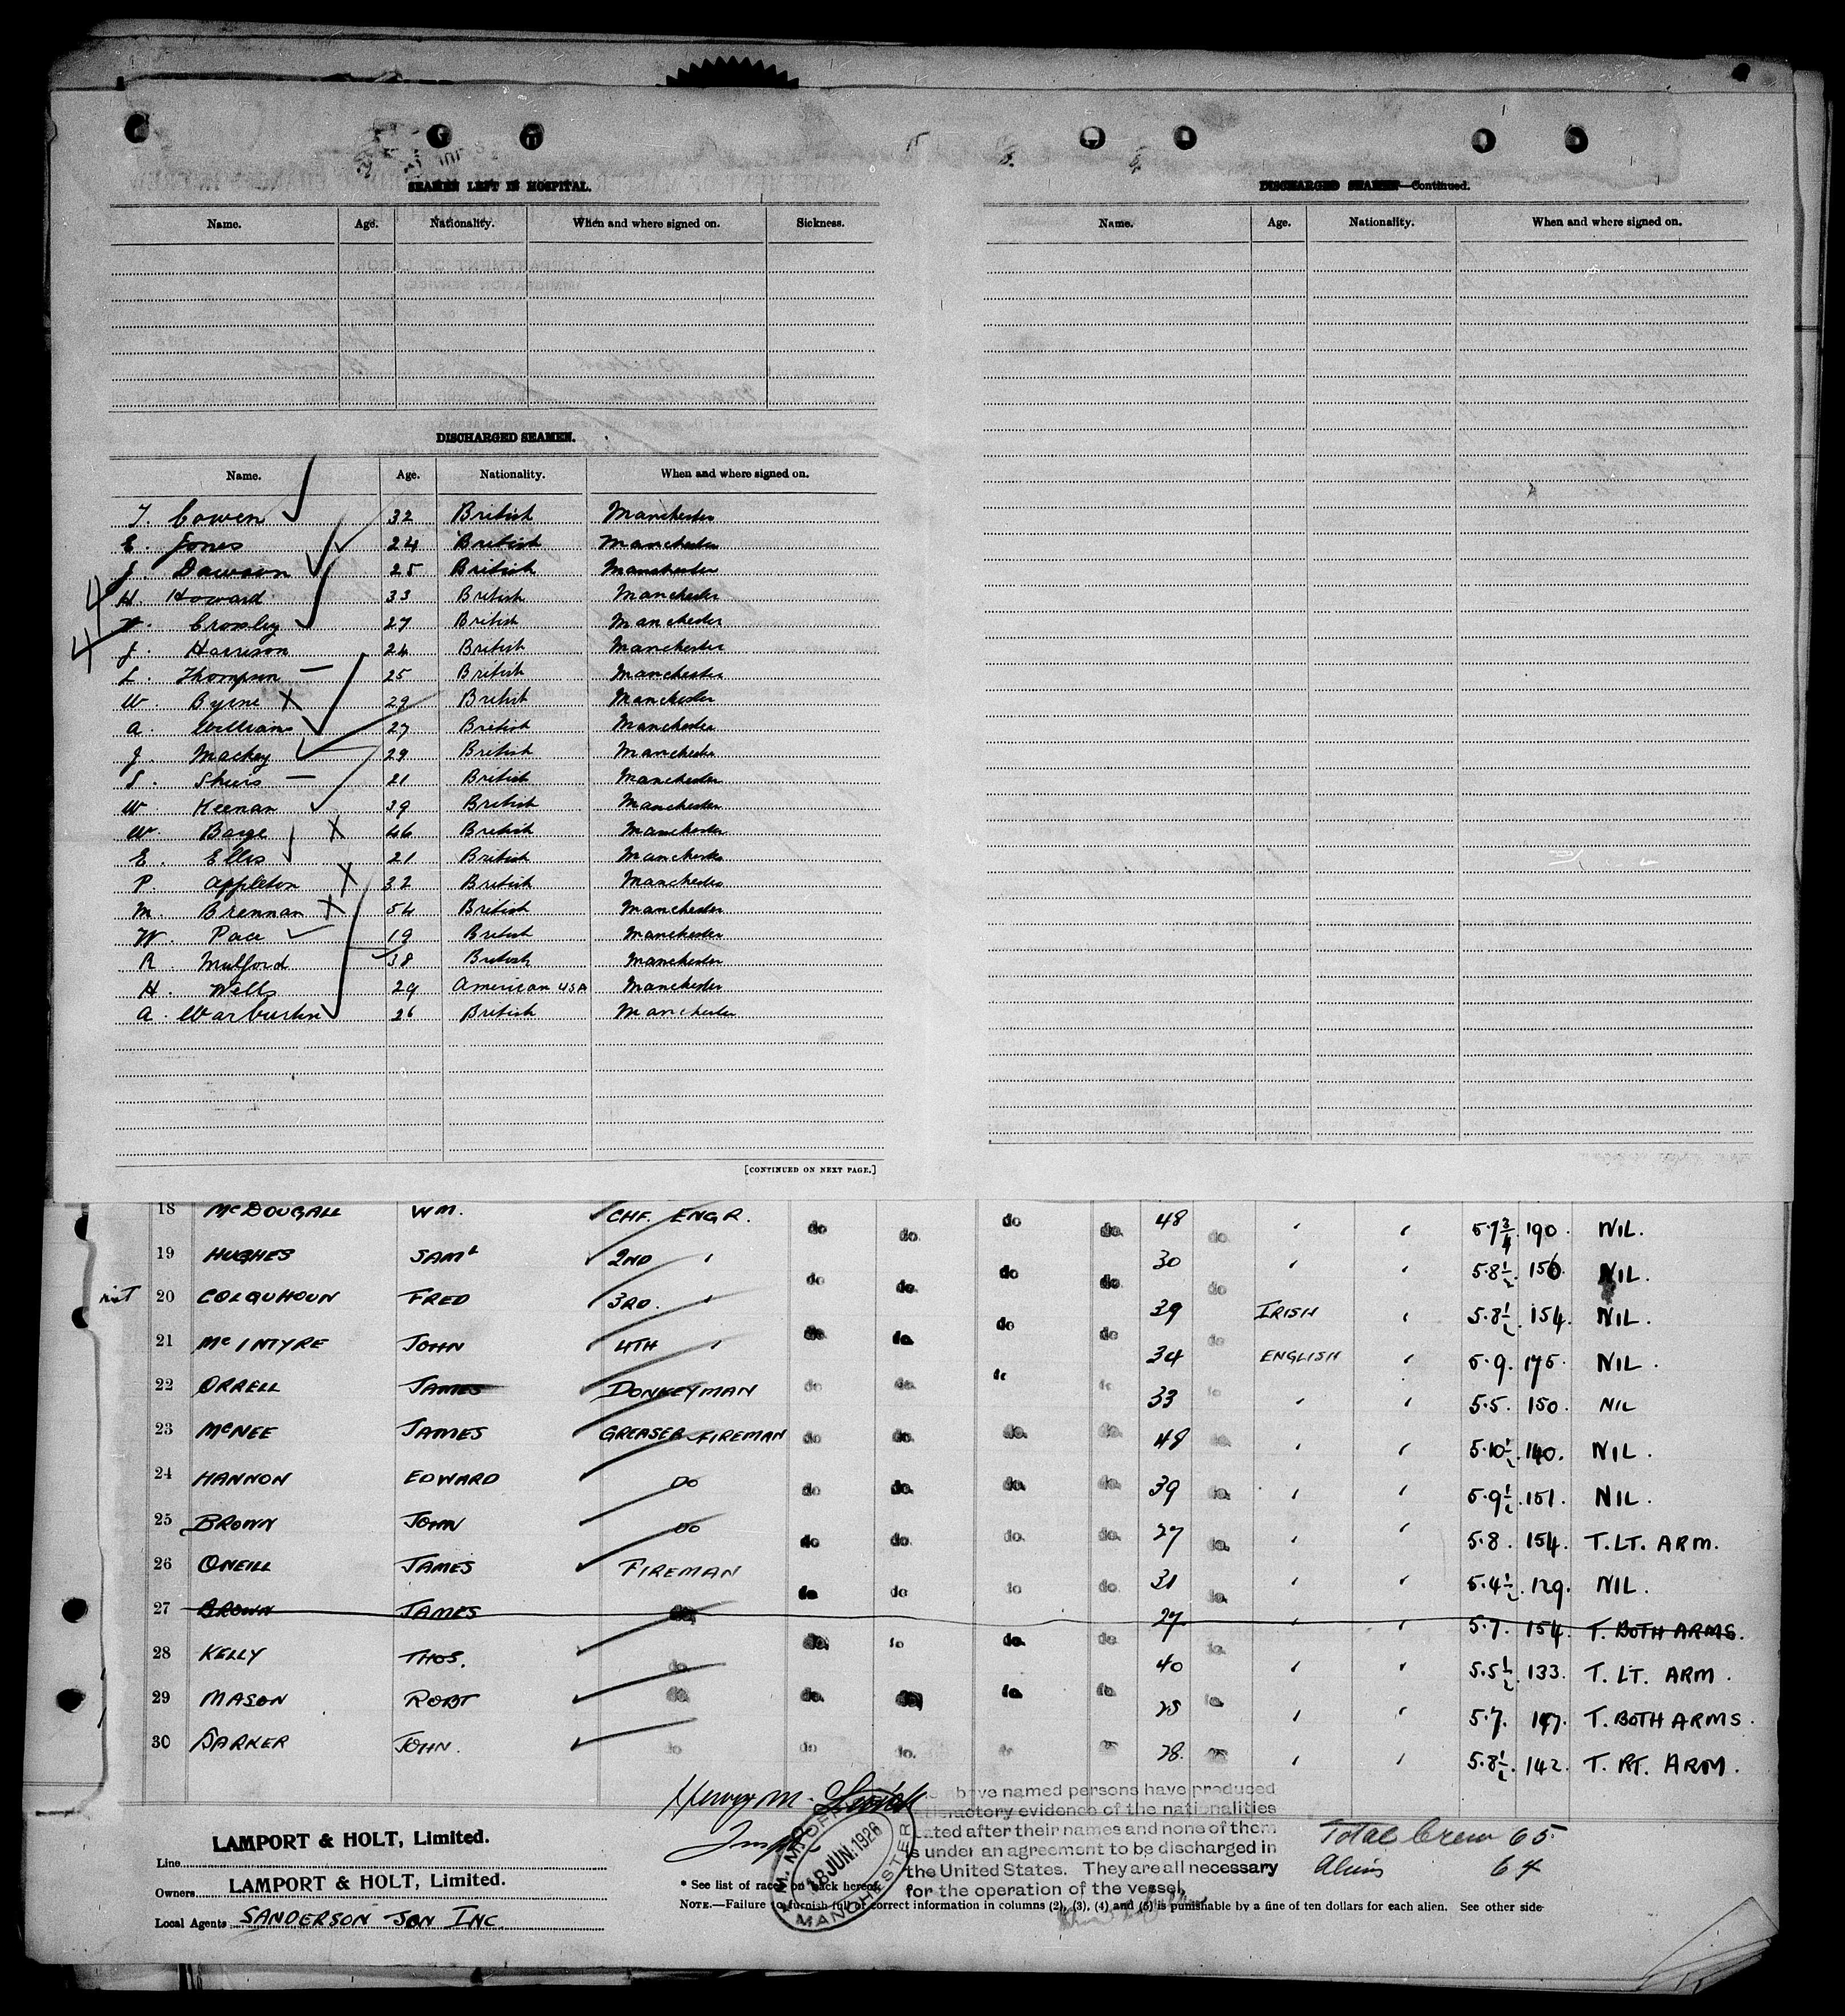 SEAMEN LEFT IN HOSPITAL.
Name. Age. Nationality. When and where signed on. Sickness.
DISCHARGED SEAMEN.
Name. Age. Nationality. When and where signed on.
T. Cowen 32 British Manchester
E. Jones 24 British Manchester
J. Dawson 25 British Manchester
4 H. Howard 33 British Manchester
Crossley 27 British Manchester
4 J. Harrison 24 British Manchester
L. Thompson — 25 British Manchester
W. Byrne X 29 British Manchester
A. Williams 27 British Manchester
J. Mackay 29 British Manchester
S. — 21 British Manchester
W Keenan 39 British Manchester
W. Barge X 46 British Manchester
E. Ellis 21 British Manchester
P. Appleton X 32 British Manchester
M. Brennan X 54 British Manchester
W. Pace 19 British Manchester
R. Mulford 38 British Manchester
H. Wells 29 American USA Manchester
A. Warburton 26 British Manchester
[CONTINUED ON NEXT PAGE.]
DISCHARGED SEAMEN—Continued.
Name. Age. Nationality. When and where signed on.
18 McDOUGALL WM. CHF. ENGR. do do. do do. 48 do. " " 5.7 3/4 190. NIL.
19 HUGHES SAML 2ND " do do. do do. 30 do " " 5.8 1/2 156. NIL.
20 COLQUHOUN FRED 3RD. " do do. do do 39 do IRISH " 5.8 1/2 154. NIL.
21 McINTYRE JOHN 4TH " do do. do do 34 do ENGLISH " 5.9. 175. NIL.
22 ORRELL JAMES DONKEYMAN do do. do do 33 do " " 5.5. 150. NIL
23 McNEE JAMES GREASER FIREMAN do do. do. do. 48 do. " " 5.10 1/2. 140. NIL.
24 HANNON EDWARD DO do do. do. do. 39 do. " " 5.9 1/2. 151. NIL.
25 BROWN JOHN DO do do. do. do. 27 do. " " 5.8. 154. T. LT. ARM.
26 ONEILL JAMES FIREMAN do do do do. 31 do. " " 5.4 1/2. 129. NIL.
27 BROWN JAMES do. do. do do. do. 27. do. " " 5.7. 154. T. BOTH ARMS.
28 KELLY THOS. do. do. do. do. do. 40 do " " 5.5 1/2 133. T. LT. ARM.
29 MASON ROBT do. do do. do 25 do. " " 5.7. 147. T. BOTH ARMS.
30 BARKER JOHN. do 28. " " 5.8 1/2. 142. T. RT. ARM.
Henry M.
above named persons have produced
satisfactory evidence of the nationalities
stated after their names and none of them
is under an agreement to be discharged in
the United States. They are all necessary
for the operation of the vessel.
M. M. OFFICE
18 JUN. 1926
MANCHESTER
Total Crew 65.
Aliens 64
LAMPORT & HOLT, Limited.
Line
LAMPORT & HOLT, Limited.
Owners
Local Agents SANDERSON SON INC.
* See list of races on back hereof.
NOTE.—Failure to furnish full or correct information in columns (2), (3), (4) and (5) is punishable by a fine of ten dollars for each alien. See other side